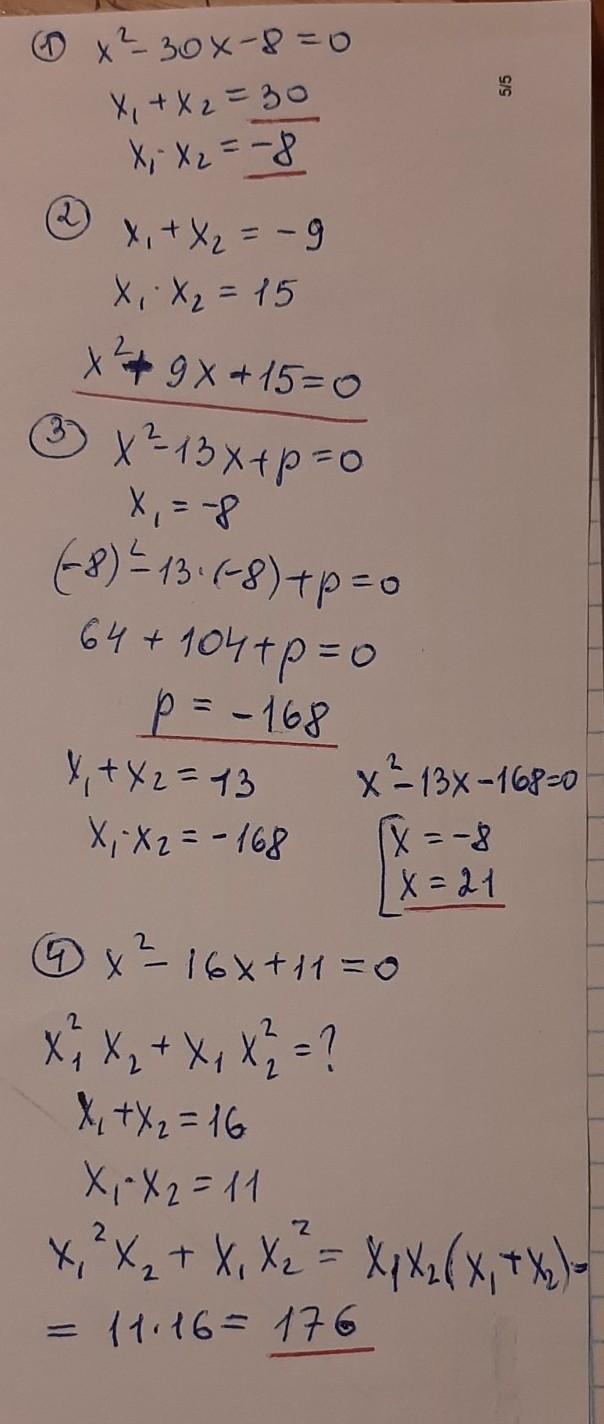 ① x² - 30x - 8 = 0
5/5
x₁ + x₂ = 30
x₁ · x₂ = -8
② x₁ + x₂ = -9
x₁ · x₂ = 15
x² + 9x + 15 = 0
③ x² - 13x + p = 0
x₁ = -8
(-8)² - 13 · (-8) + p = 0
64 + 104 + p = 0
p = -168
x₁ + x₂ = 13
x₁ · x₂ = -168
x² - 13x - 168 = 0
[x = -8
x = 21
④ x² - 16x + 11 = 0
x₁² x₂ + x₁ x₂² = ?
x₁ + x₂ = 16
x₁ · x₂ = 11
x₁² x₂ + x₁ x₂² = x₁x₂(x₁ + x₂) =
= 11 · 16 = 176